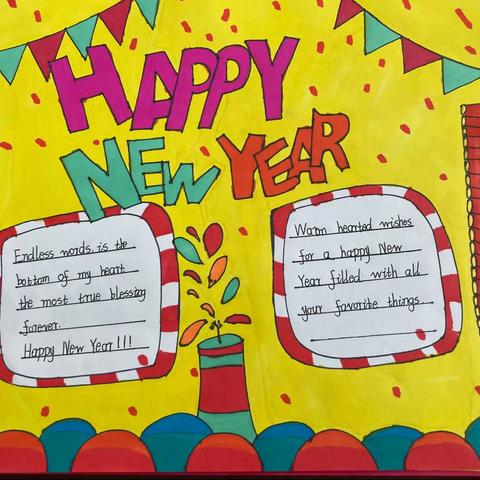 HAPPY
NEW YEAR
Endless words, is the
bottom of my heart
the most true blessing
forever.
Happy New Year!!!
Warm hearted wishes
for a happy New
Year filled with all
your favorite things.